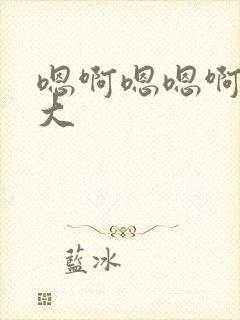 嗯啊嗯嗯啊
大
藍冰